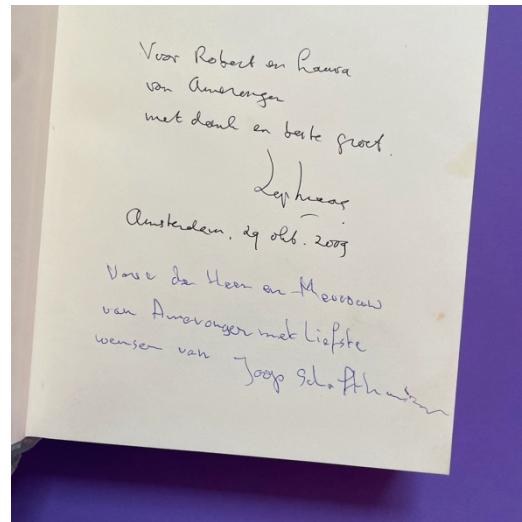 Voor Robert en Laura
van Amerongen
met dank en beste groet.
Amsterdam, 29 okt. 2009
Voor de Heer en Mevrouw
van Amerongen met liefste
wensen van Joop Schafthuizen